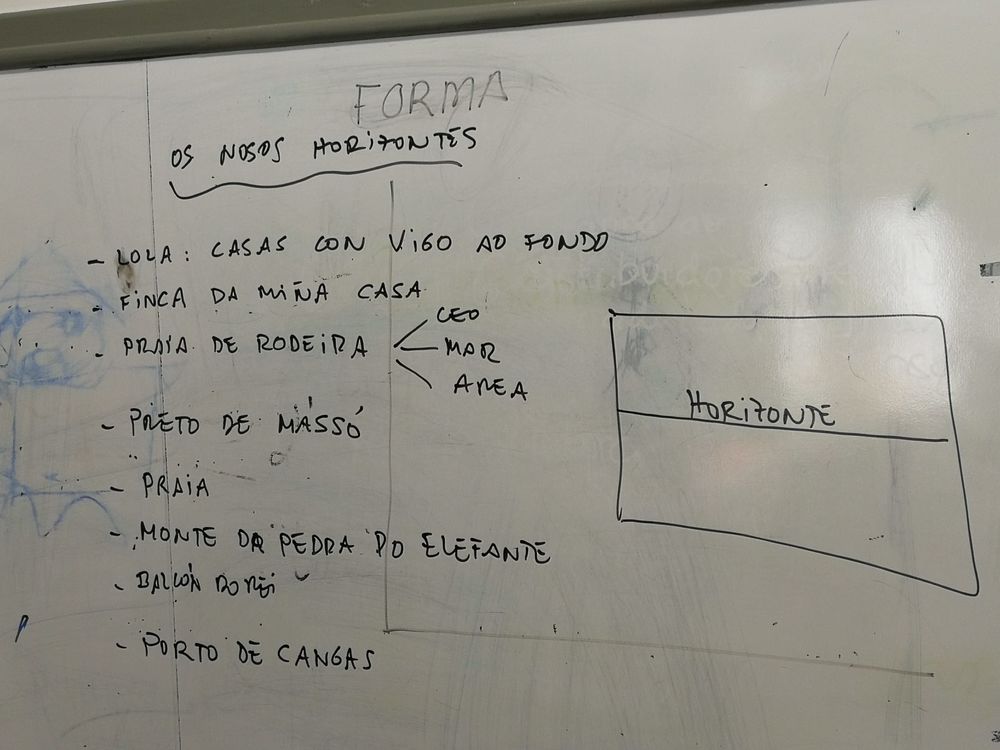 FORMA
OS NOSOS HORIZONTES
- LOLA: CASAS CON VIGO AO FONDO
- FINCA DA MIÑA CASA
- PRAIA DE RODEIRA
CEO
MAR
AREA
- PRETO DE MASSÓ
- PRAIA
- MONTE DA PEDRA DO ELEFANTE
- BALCÓN DO REI
- PORTO DE CANGAS
HORIZONTE